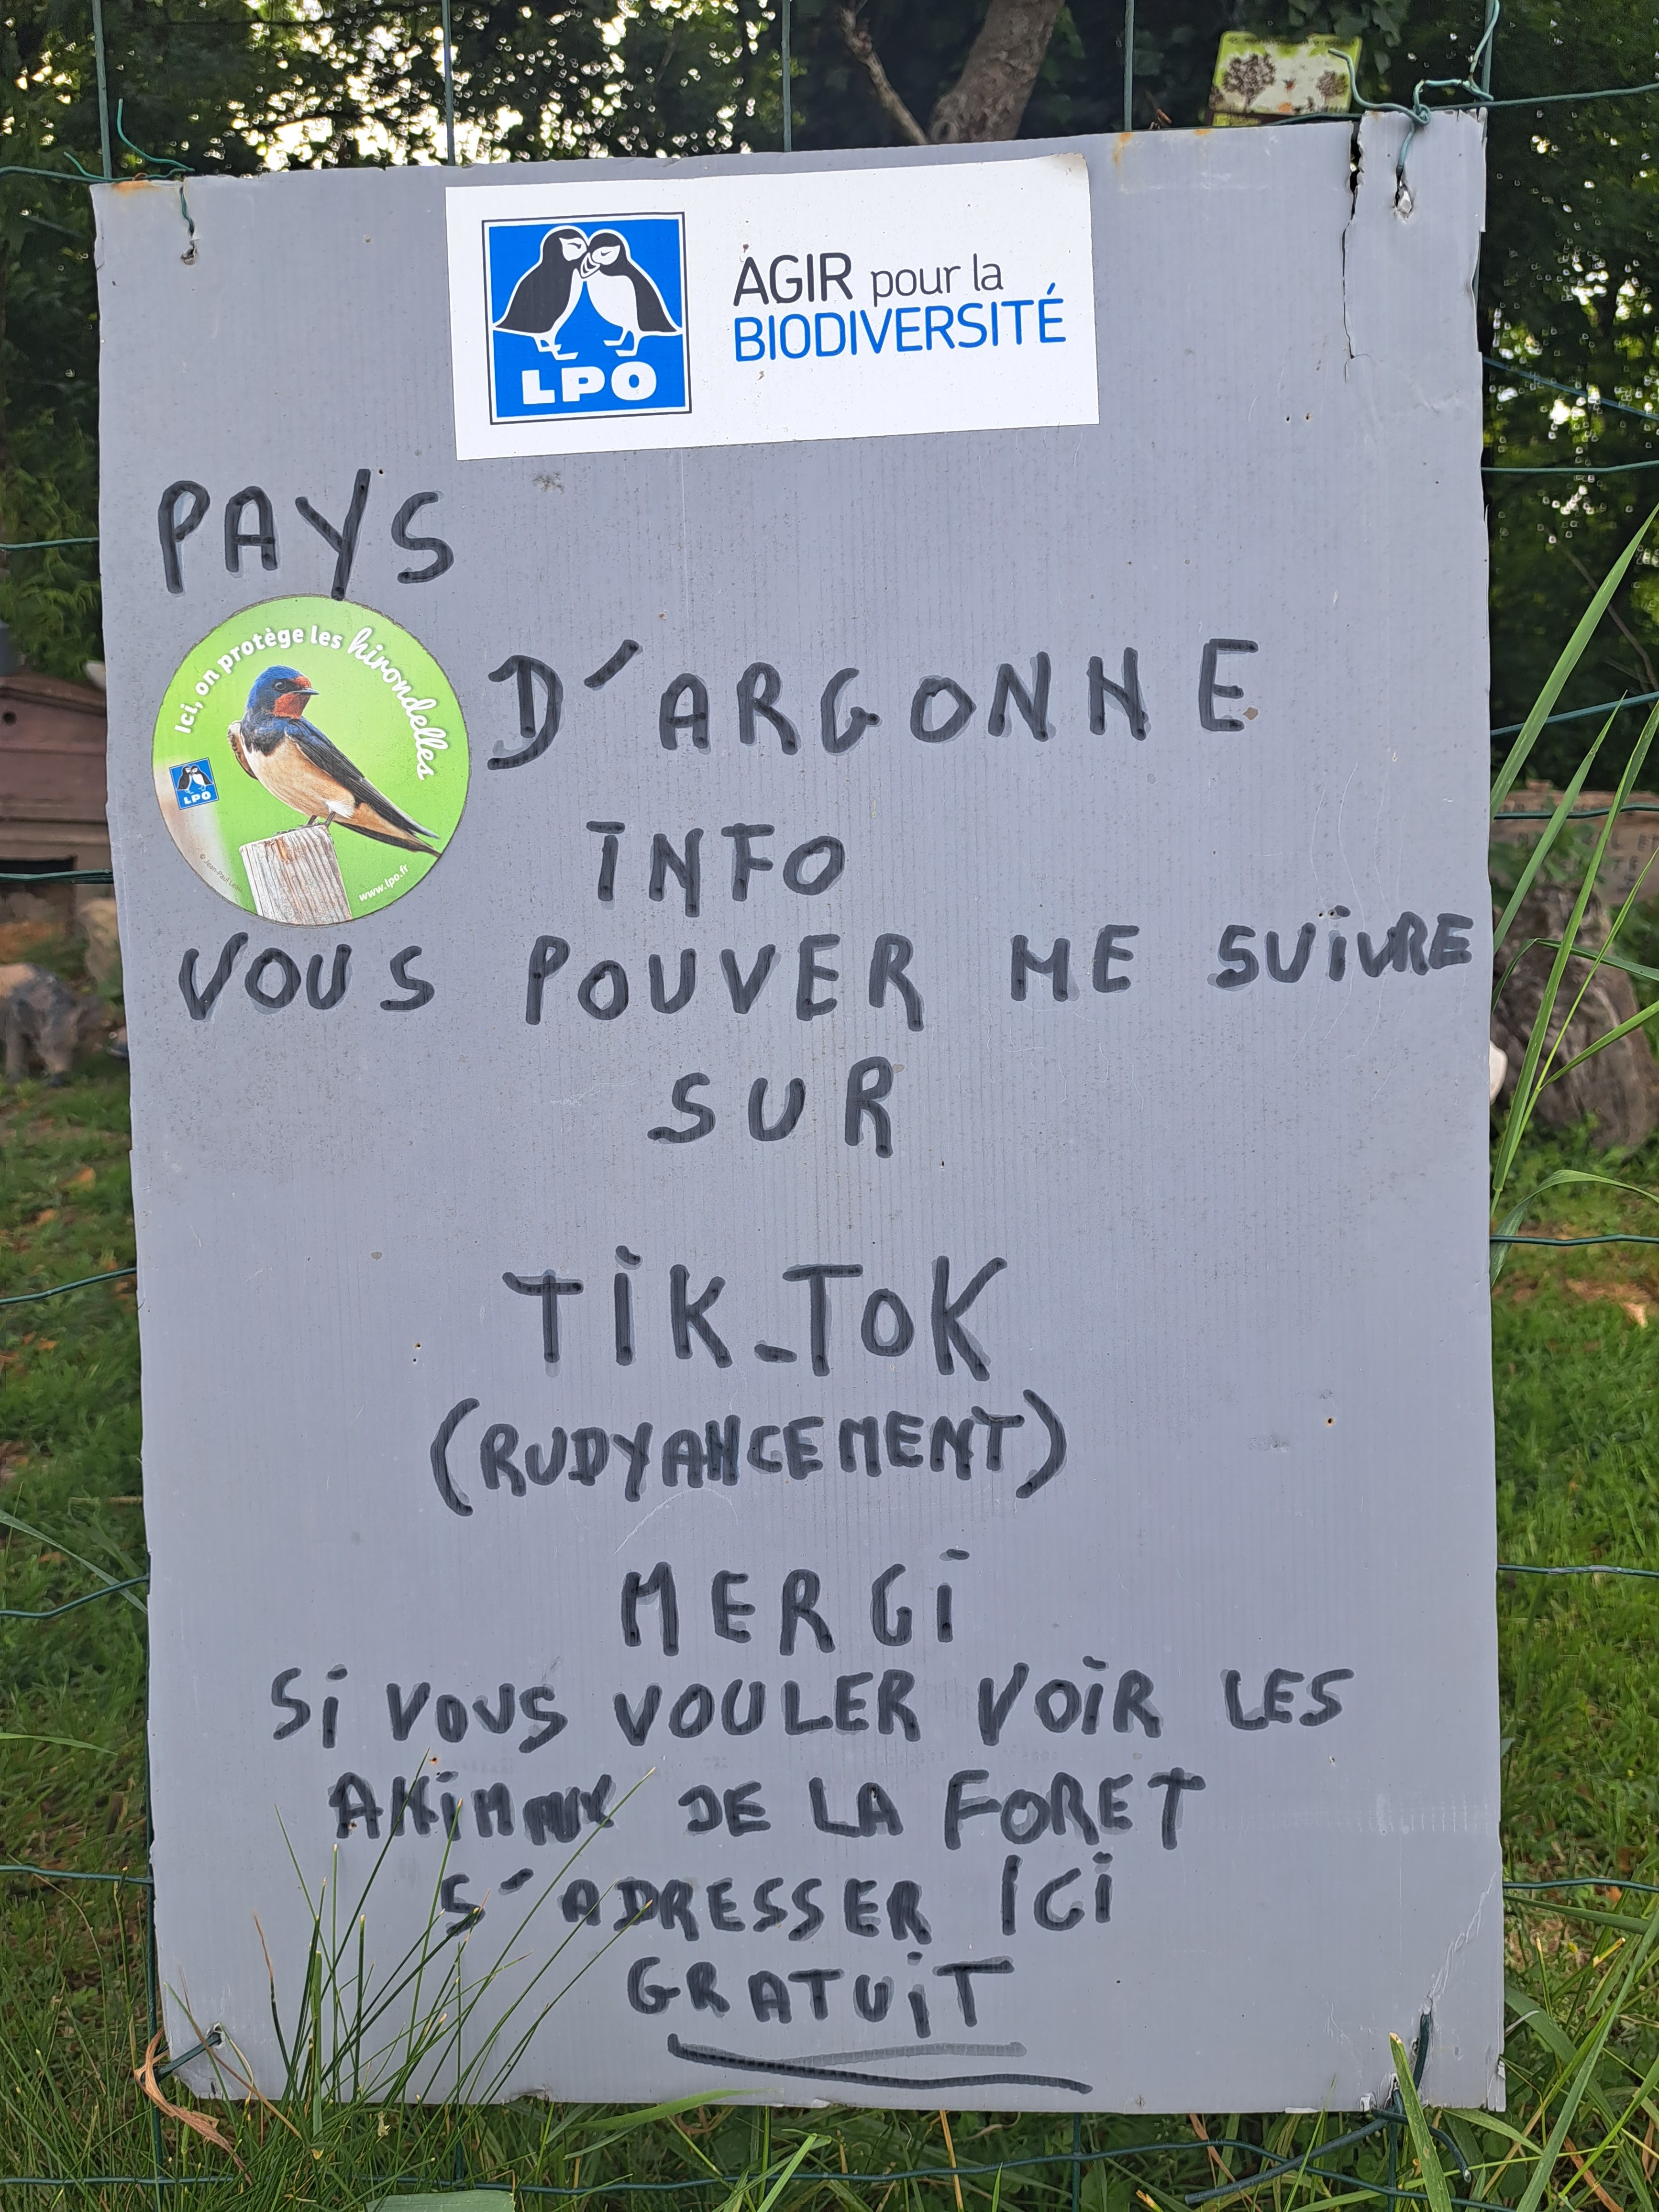 AGIR pour la
BIODIVERSITÉ
LPO
PAYS
Ici, on protège les hirondelles
LPO
www.lpo.fr
D'ARGONNE
INFO
VOUS POUVER ME SUIVRE
SUR
TIK-TOK
(RUDYANCEMENT)
MERCI
SI VOUS VOULER VOIR LES
ANIMAUX DE LA FORET
S'ADRESSER ICI
GRATUIT